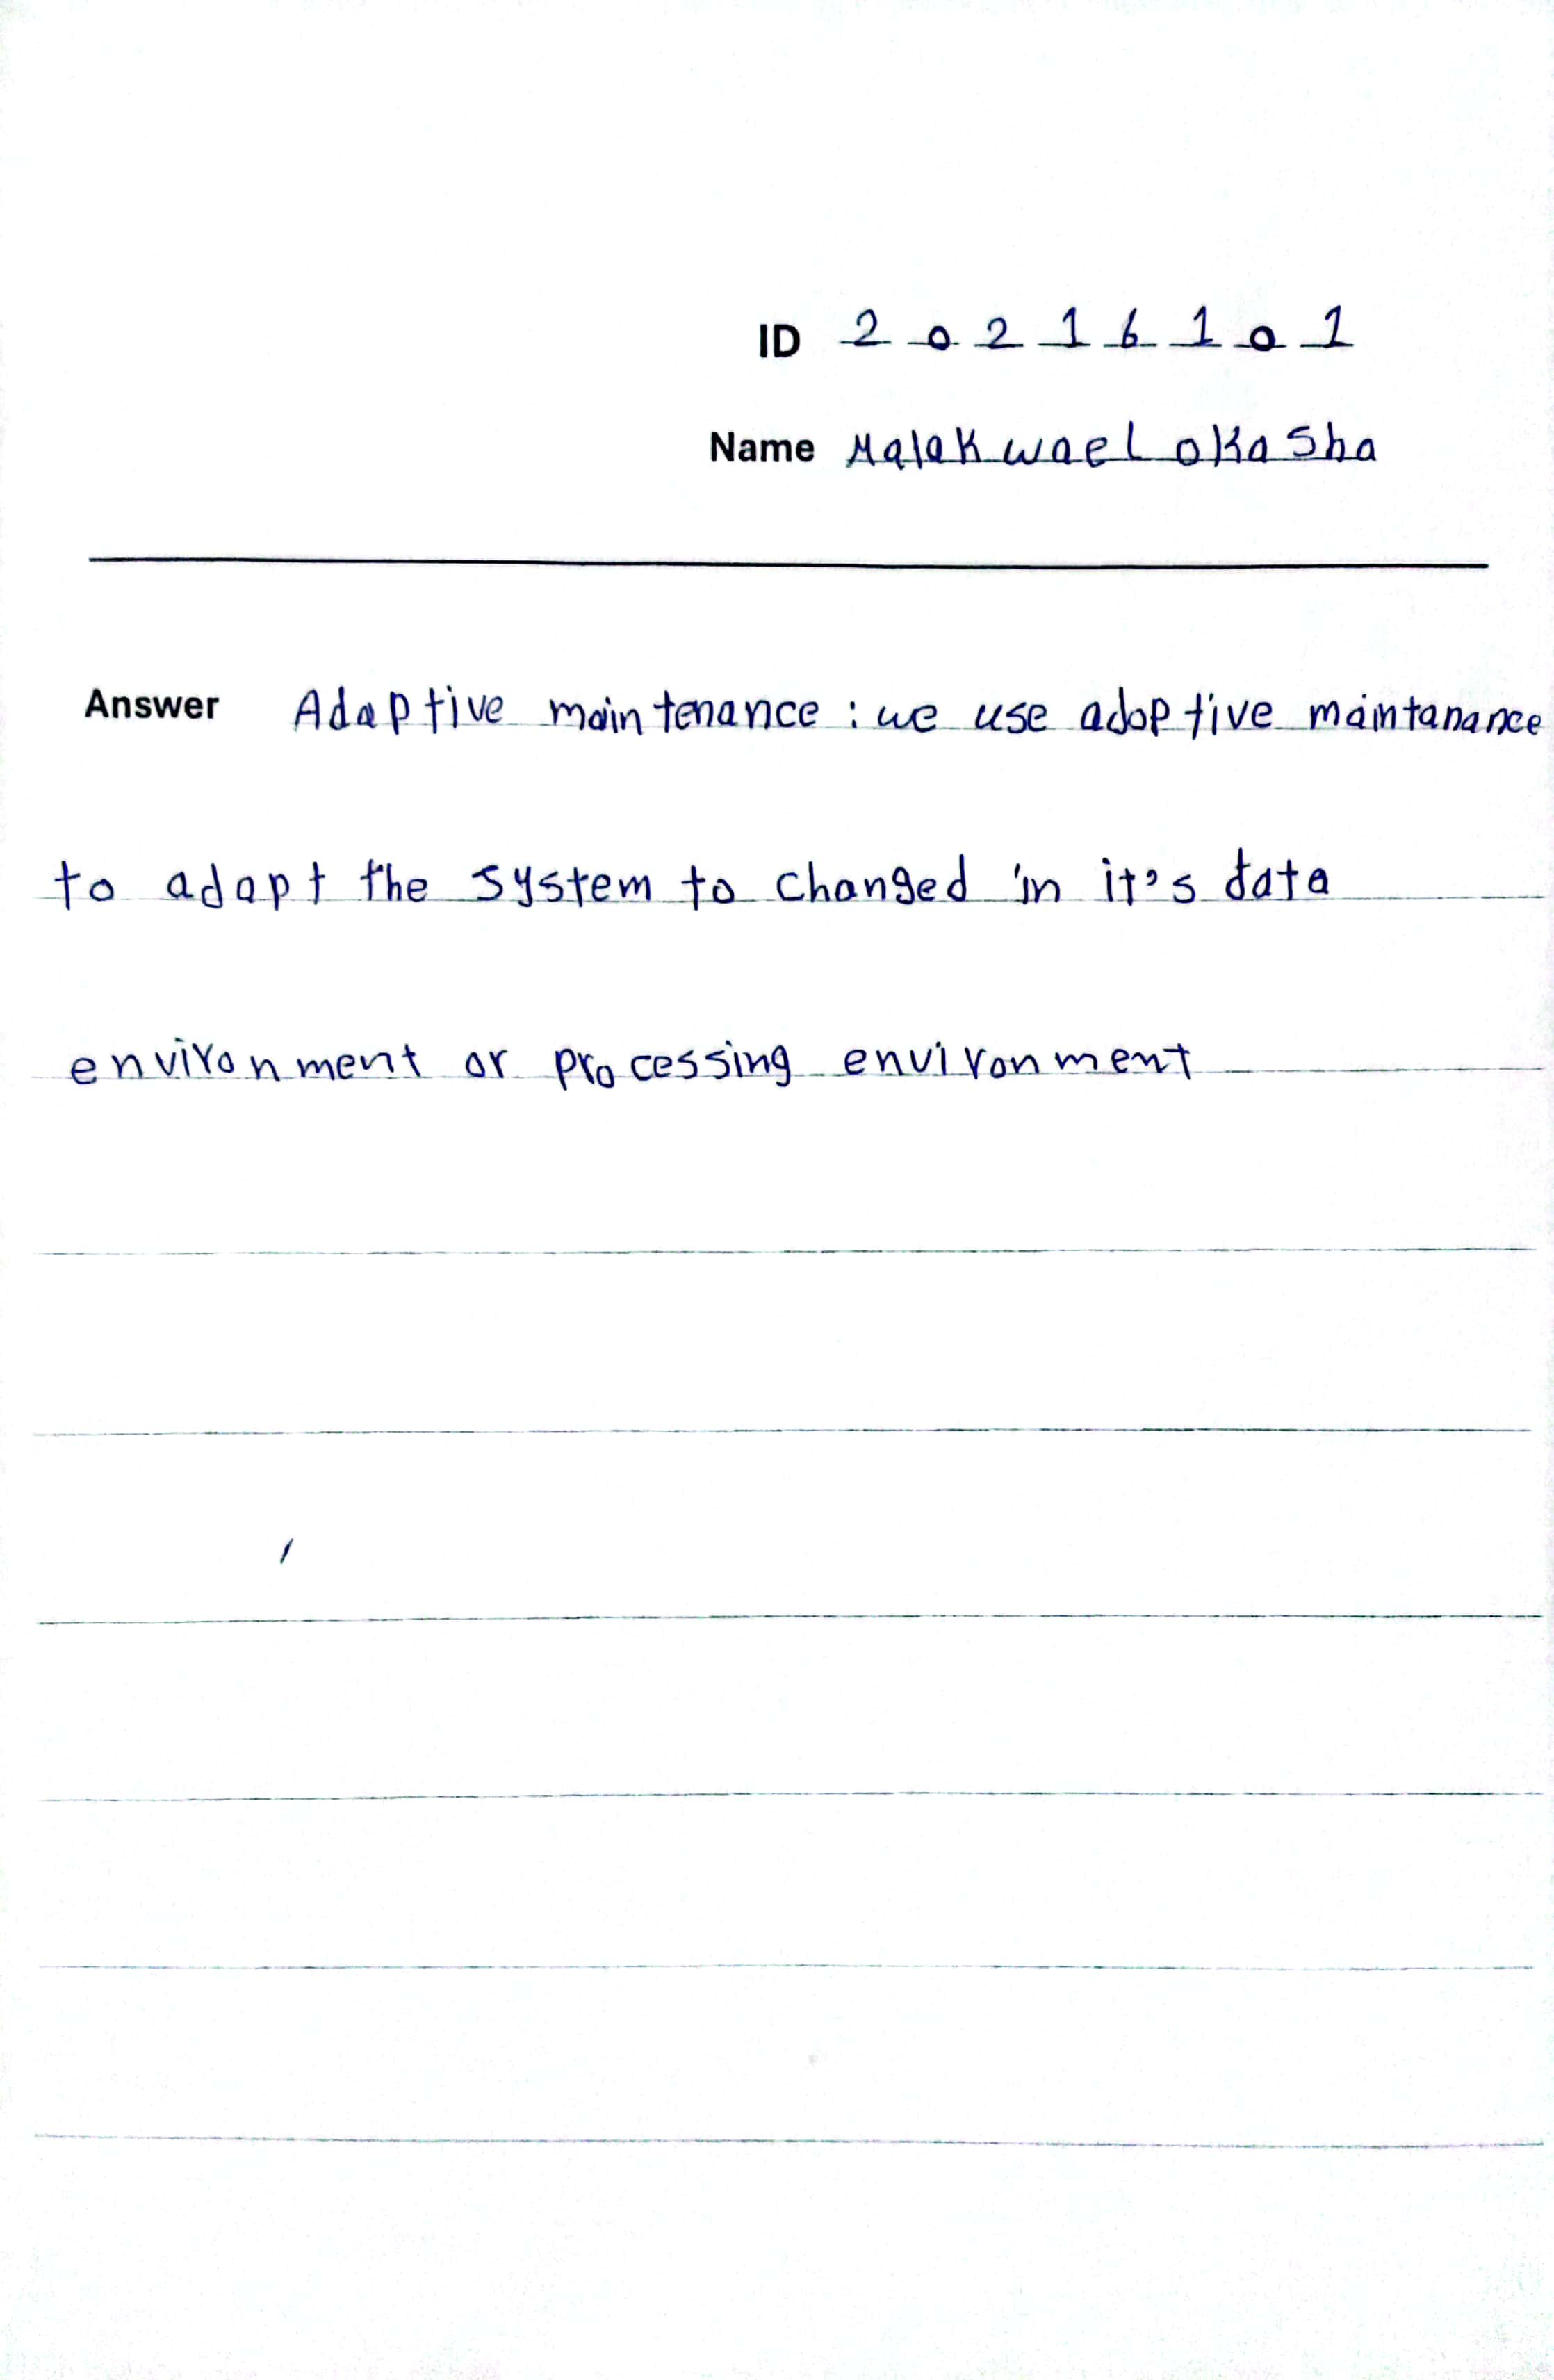 ID 2 0 2 1 6 1 0 1
Name Malak wael okasha
Answer Adaptive maintenance : we use adoptive maintanance
to adapt the system to changed in it's data
environment or processing environment